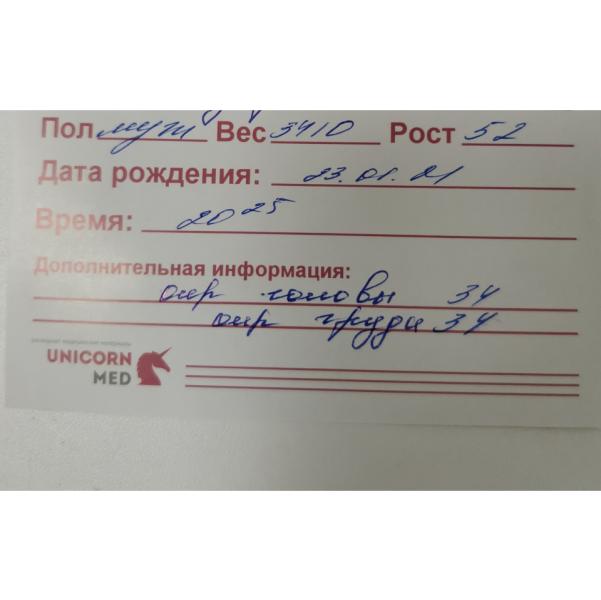 Пол муж Вес 3410 Рост 52
Дата рождения: 23.01.21
Время: 20 25
Дополнительная информация:
окр головы 34
окр груди 34
UNICORN
MED